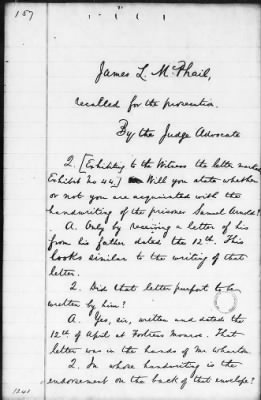 157
James L. McPhail,
recalled for the prosecution.
By the Judge Advocate
Q. [Exhibiting to the witness the letter marked
Exhibit No 44.] Will you state whether
or not you are acquainted with the
handwriting of the prisoner Samuel Arnold?
A. Only by receiving a letter of his
from his father dated the 12th. This
looks similar to the writing of that
letter.
Q. Did that letter purport to be
written by him?
A. Yes, sir, written and dated the
12th of April at Fortress Monroe. That
letter was in the hands of Mr Wharton.
Q. In whose handwriting is the
endorsement on the back of that envelope?
1241